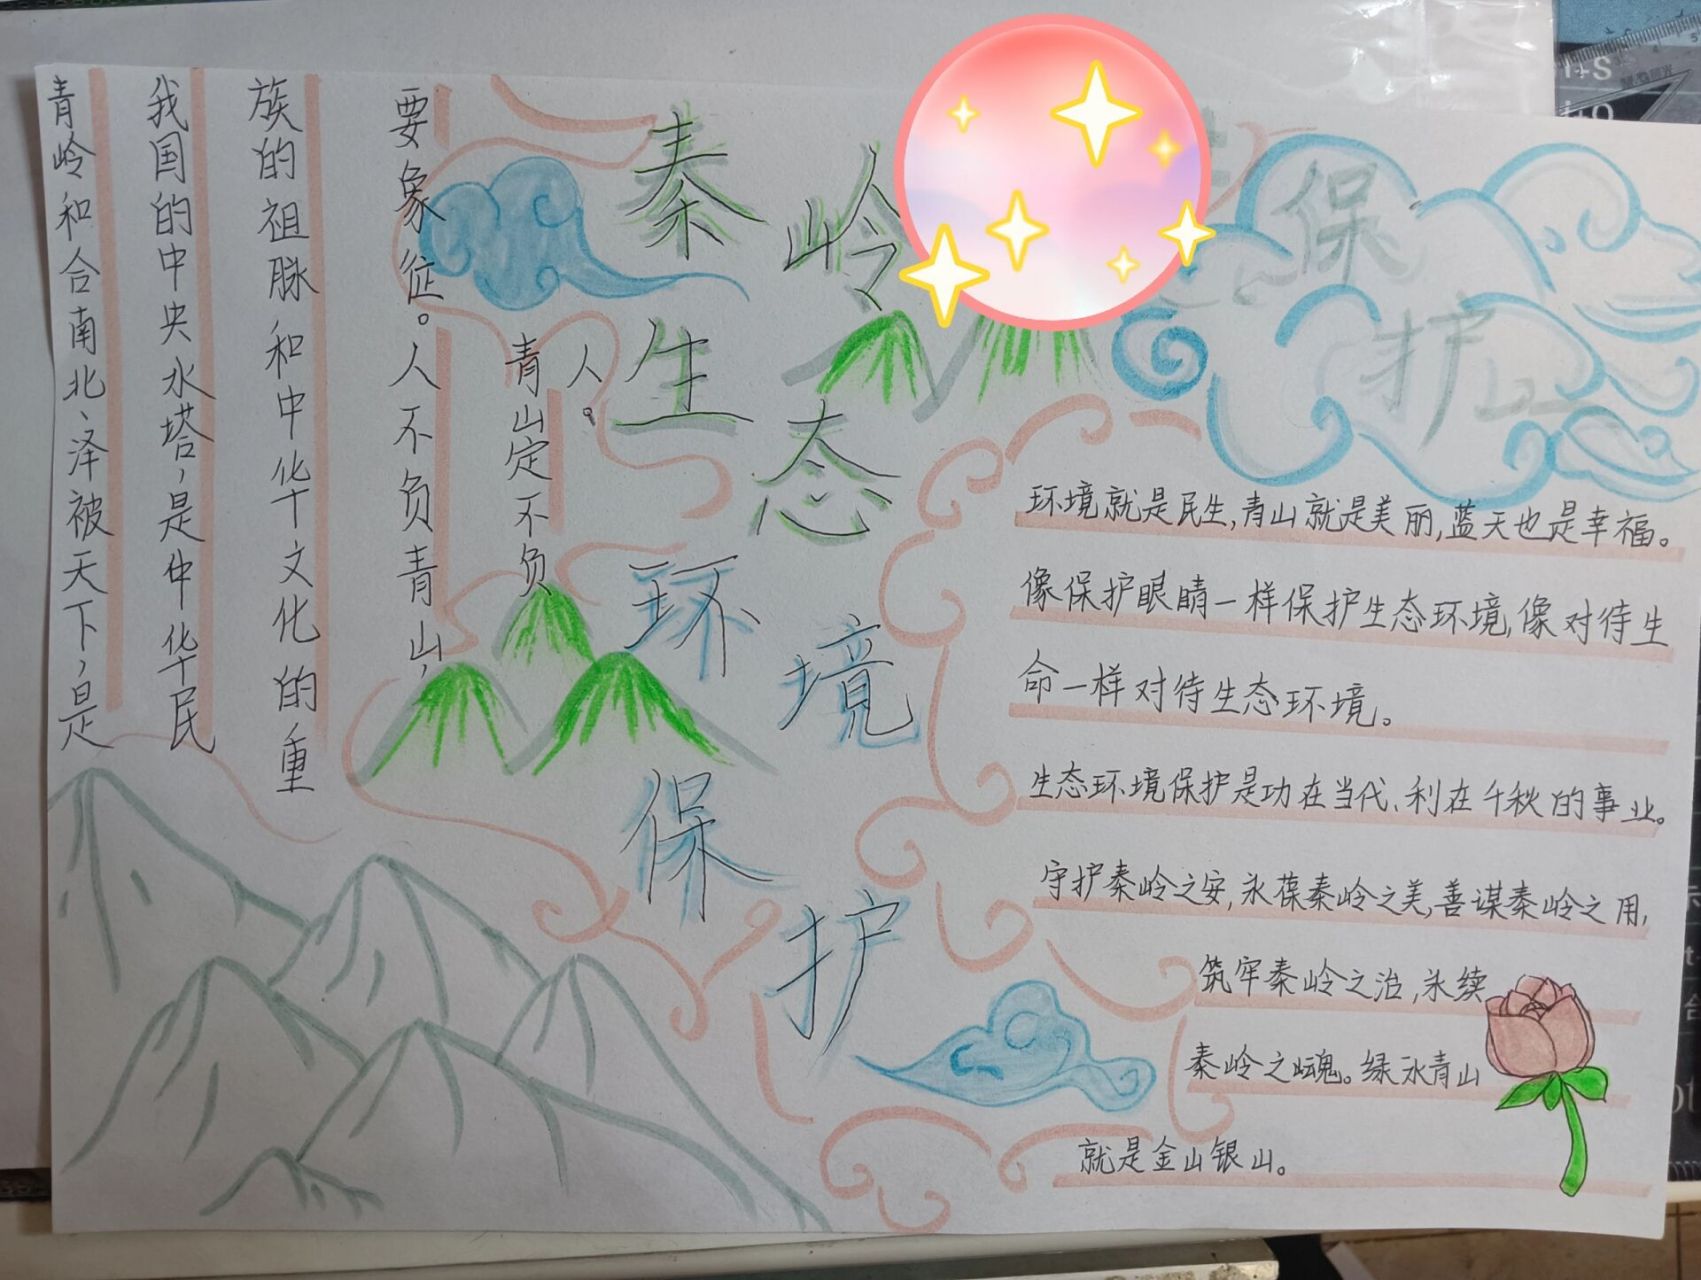 青岭和合南北、泽被天下,是
我国的中央水塔,是仲华民
族的祖脉和中华文化的重
要象征。人不负青山,
青山定不负
人。
秦岭
生态
环境
保护
保护
环境就是民生,青山就是美丽,蓝天也是幸福。
像保护眼睛一样保护生态环境,像对待生
命一样对待生态环境。
生态环境保护是功在当代、利在千秋的事业。
守护秦岭之安,永葆秦岭之美,善谋秦岭之用,
筑牢秦岭之治,永续
秦岭之魂。绿水青山
就是金山银山。